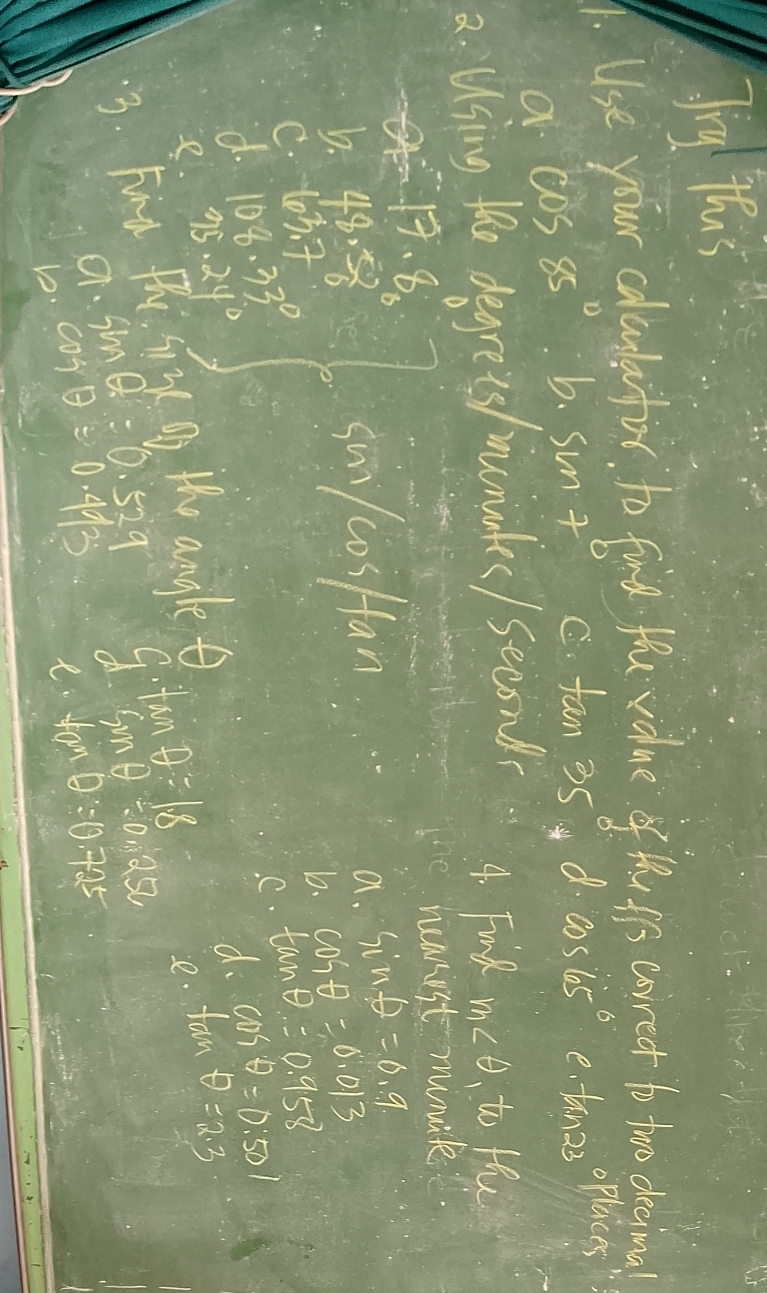 Try this
1. Use your calculator to find the value of the ffs correct to two decimal places
a cos 85° b. sin 7° c. tan 35° d. cos 65° e. tan 23°
2. Using the degrees/minutes/seconds
a 17.8°
b. 48.52°
c. 63.7°
d. 108.33°
e. 95.24°
sin/cos/tan
3. Find the size of the angle θ
a. sin θ = 0.529
b. cos θ = 0.493
c. tan θ = 1.8
d. sin θ = 0.252
e. tan θ = 0.725
4. Find m∠θ, to the
nearest minute.
a. sin θ = 0.9
b. cos θ = 0.013
c. tan θ = 0.958
d. cos θ = 0.501
e. tan θ = 2.3